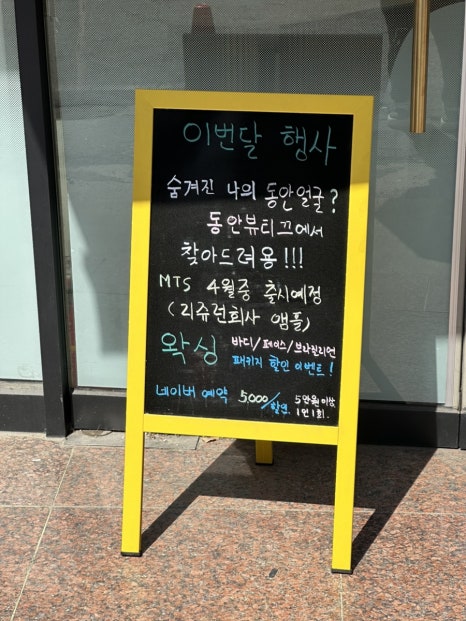 이번달 행사
숨겨진 나의 동안얼굴?
동안뷰티끄에서
찾아드려용!!!
MTS 4월중 출시예정
(리쥬런회사 앰플)
왁싱 바디/페이스/브라질리언
패키지 할인 이벤트!
네이버 예약 5,000/할인. 5만원이상,
1인1회.